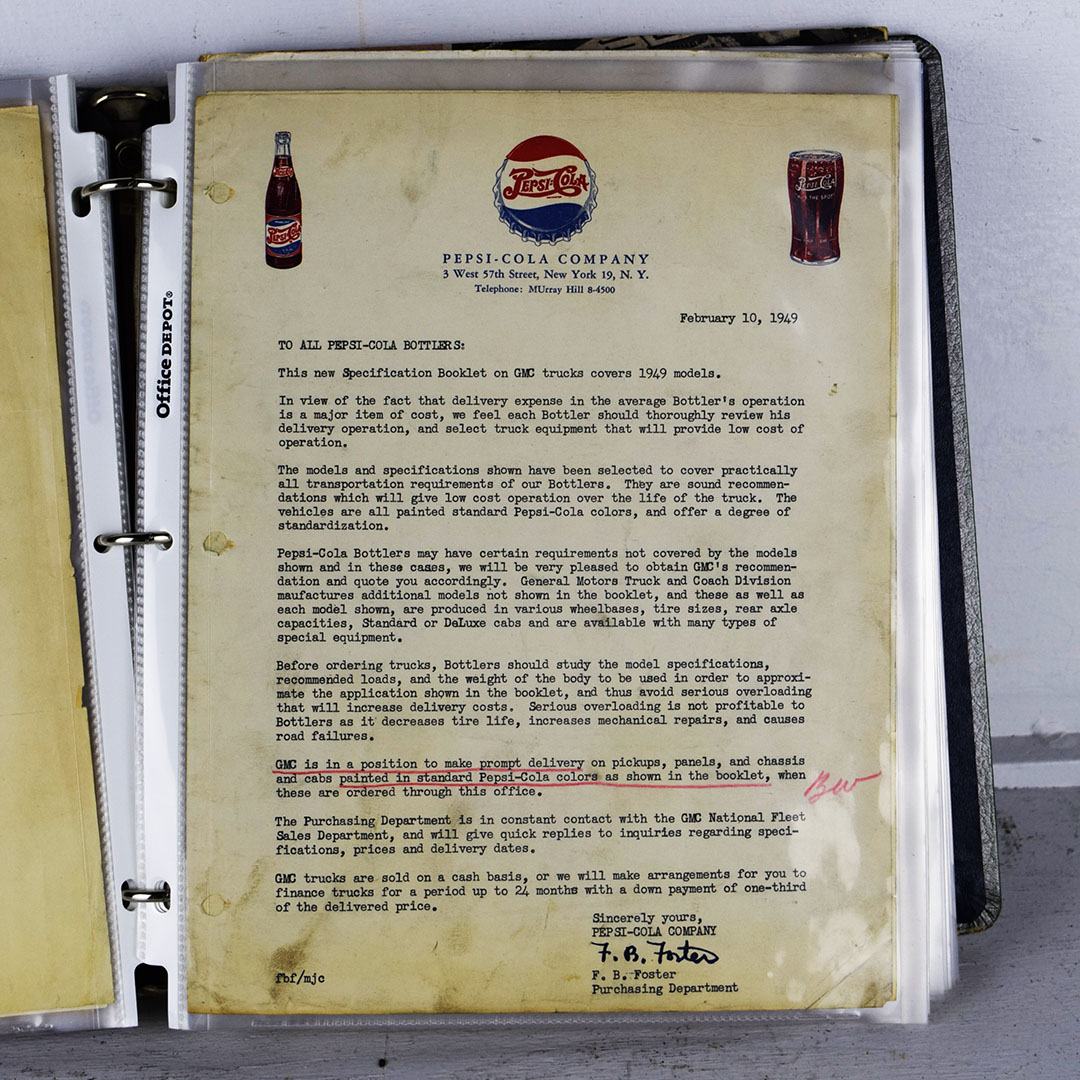 PEPSI-COLA
PEPSI-COLA
PEPSI-COLA
PEPSI-COLA COMPANY
3 West 57th Street, New York 19, N. Y.
Telephone: MUrray Hill 8-4500
Office DEPOT®
February 10, 1949
TO ALL PEPSI-COLA BOTTLERS:
This new Specification Booklet on GMC trucks covers 1949 models.
In view of the fact that delivery expense in the average Bottler's operation
is a major item of cost, we feel each Bottler should thoroughly review his
delivery operation, and select truck equipment that will provide low cost of
operation.
The models and specifications shown have been selected to cover practically
all transportation requirements of our Bottlers. They are sound recommen-
dations which will give low cost operation over the life of the truck. The
vehicles are all painted standard Pepsi-Cola colors, and offer a degree of
standardization.
Pepsi-Cola Bottlers may have certain requirements not covered by the models
shown and in these cases, we will be very pleased to obtain GMC's recommen-
dation and quote you accordingly. General Motors Truck and Coach Division
maufactures additional models not shown in the booklet, and these as well as
each model shown, are produced in various wheelbases, tire sizes, rear axle
capacities, Standard or DeLuxe cabs and are available with many types of
special equipment.
Before ordering trucks, Bottlers should study the model specifications,
recommended loads, and the weight of the body to be used in order to approxi-
mate the application shown in the booklet, and thus avoid serious overloading
that will increase delivery costs. Serious overloading is not profitable to
Bottlers as it decreases tire life, increases mechanical repairs, and causes
road failures.
GMC is in a position to make prompt delivery on pickups, panels, and chassis
and cabs painted in standard Pepsi-Cola colors as shown in the booklet, when
these are ordered through this office.
The Purchasing Department is in constant contact with the GMC National Fleet
Sales Department, and will give quick replies to inquiries regarding speci-
fications, prices and delivery dates.
GMC trucks are sold on a cash basis, or we will make arrangements for you to
finance trucks for a period up to 24 months with a down payment of one-third
of the delivered price.
Sincerely yours,
PEPSI-COLA COMPANY
F. B. Foster
fbf/mjc
F. B. Foster
Purchasing Department